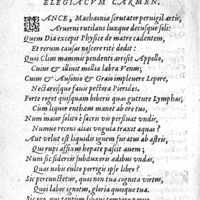 ELEGIACVM CARMEN.
LANCE, Machaonia scrutator peruigil artis,
Aruerni rutilans luxque decusque soli:
Quem Dia excepit Physice de matre cadentem,
Et rerum causas noscere rité dedit:
Quis Clius mammis pendenti arrisit Apollo,
Cuius & illiuit mollia labra Venus;
Cum & Ausonio & Graio impleuere Lepore,
Nectareisque fauis pectora Pierides.
Forte roget quisquam biberis quas gutture Lymphas,
Cum liquet enthean manet ab ore tuo,
Num maior solito è sacris vis perfluat vndis,
Numue recens alias vngula traxit aquas?
Aut velut est liquidis ignem furatus ab astris,
Qui rupi affixus hepate pascit auem;
Num sic sidereis subduxeris adibus vndas,
Quas nobis vultu porrigis ipse libro?
Sic percunctetur, quis non tua cognita virtus,
Quos labor ignotus, gloria quosque tua.